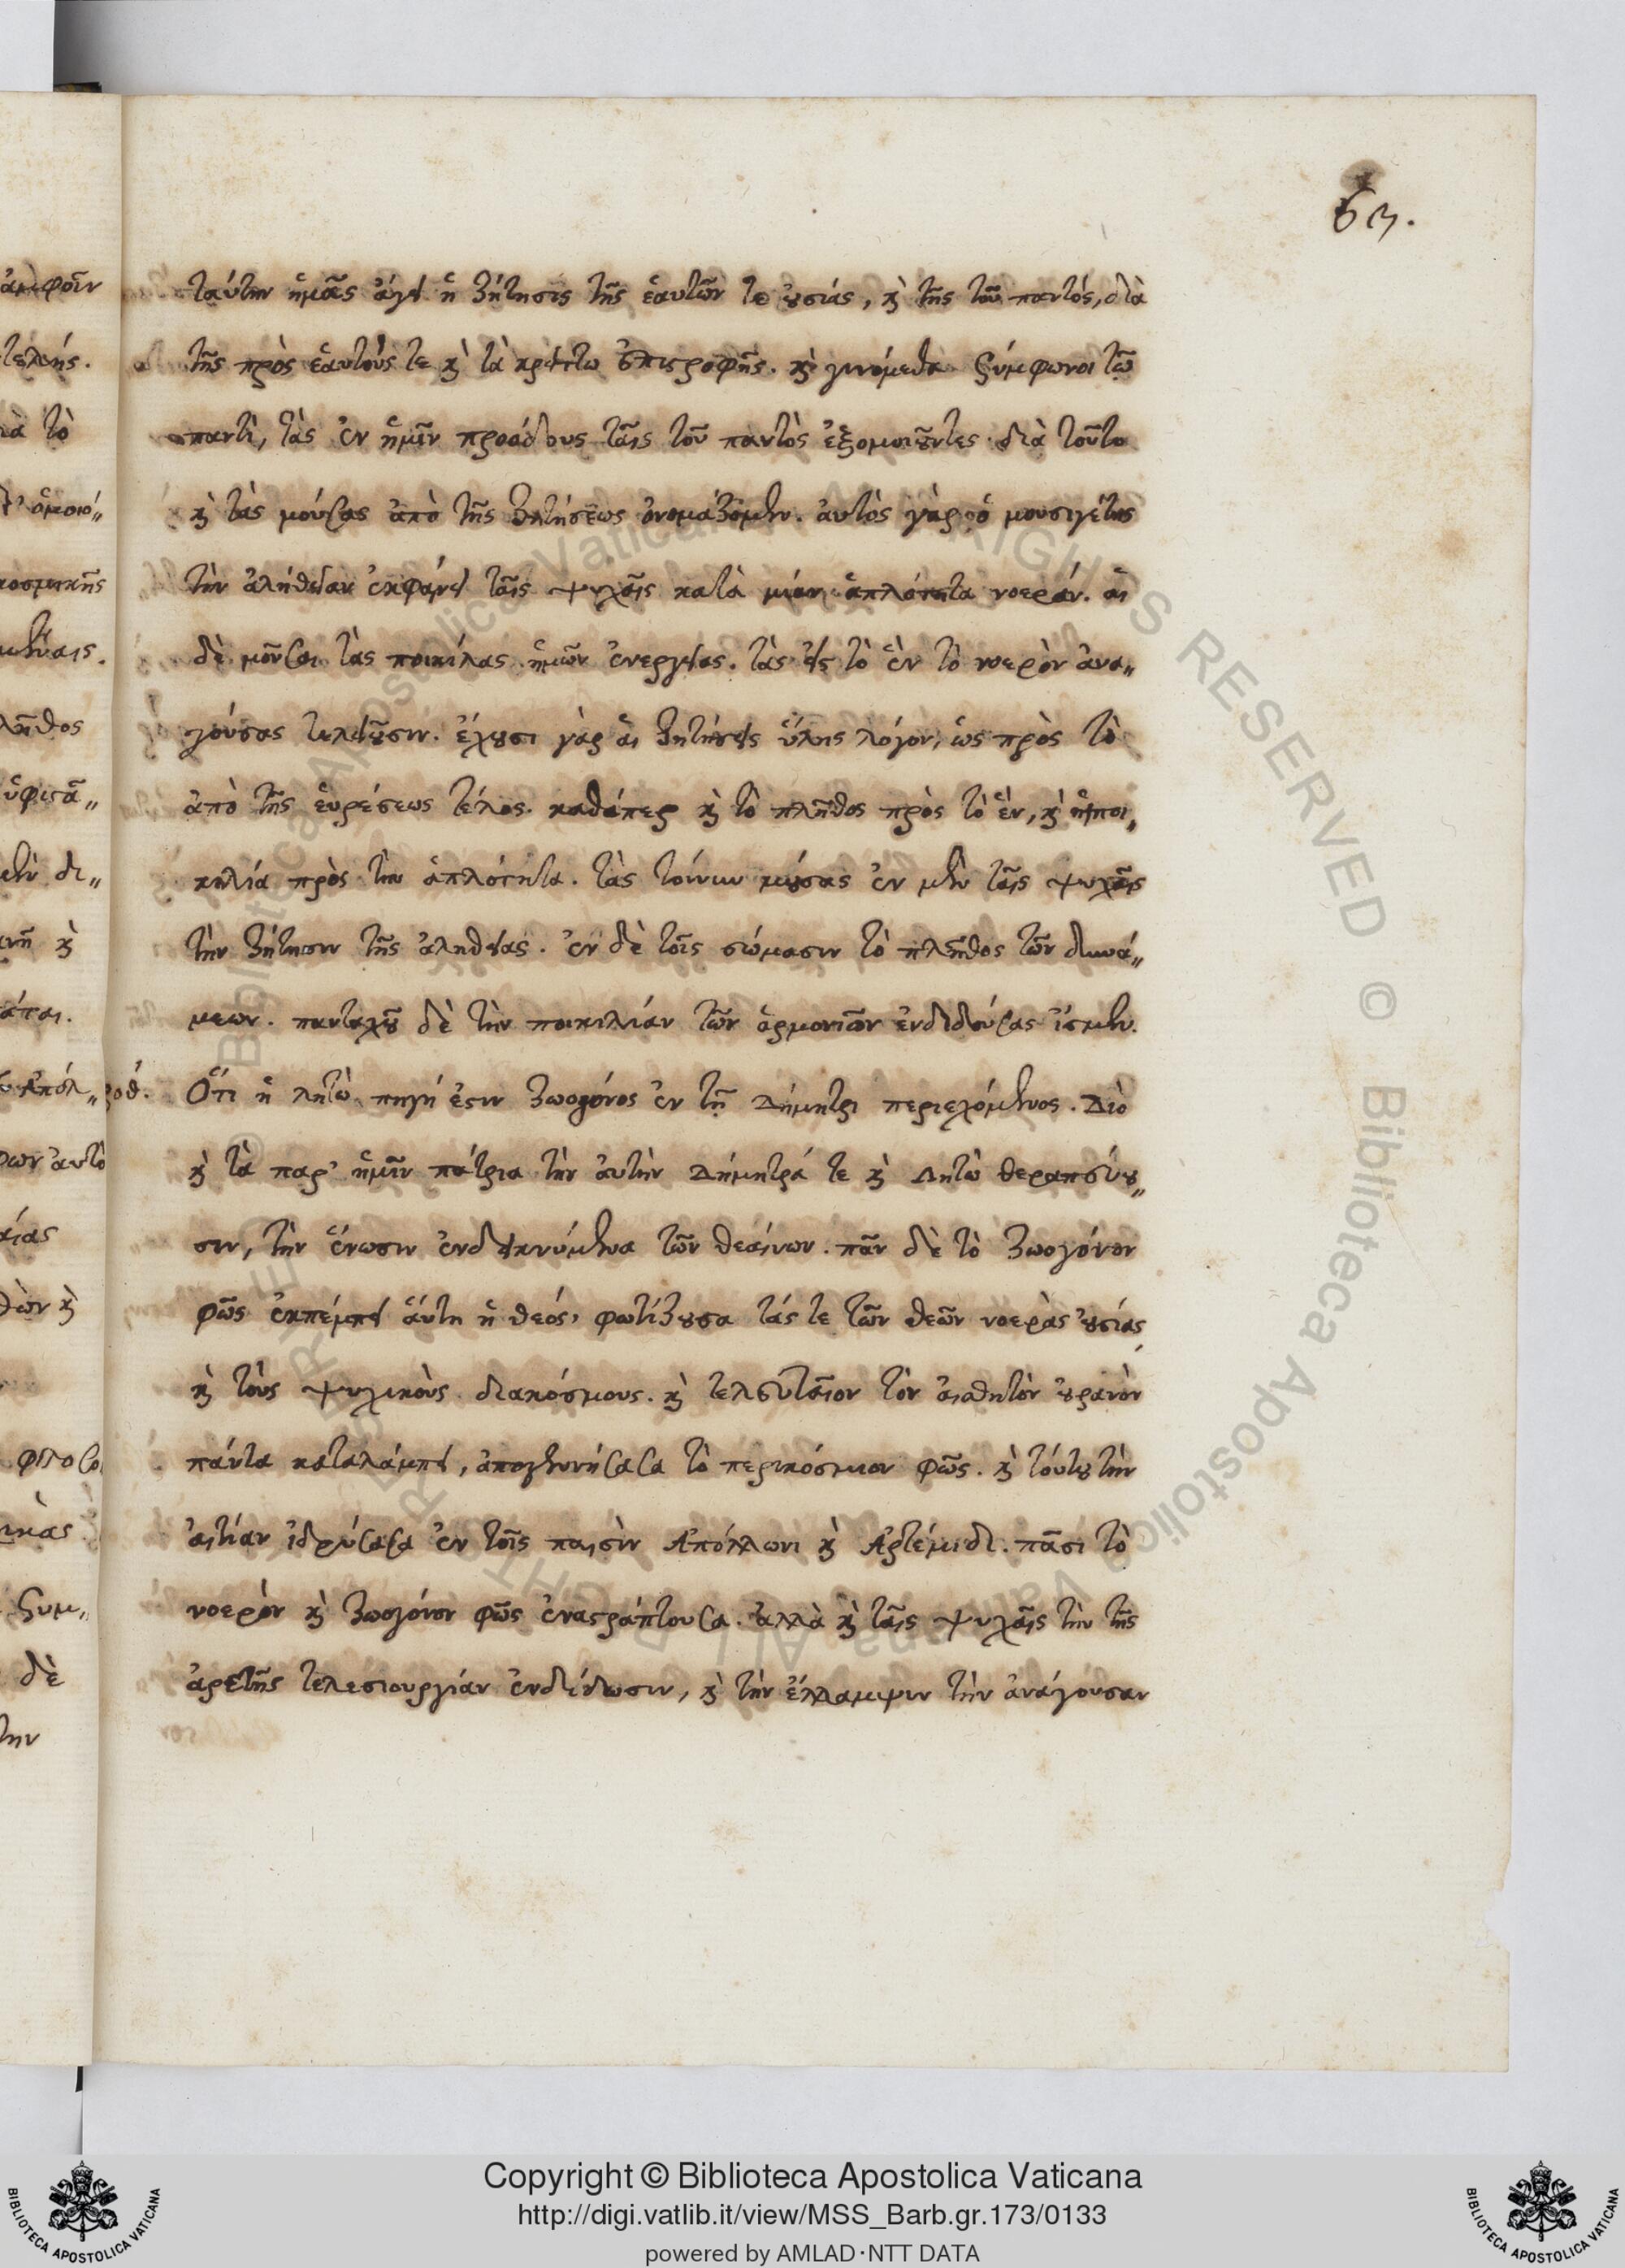 63.
ταύτην ἡμᾶς ἄγει ἡ ζήτησις τῆς ἑαυτῶν τε οὐσίας, καὶ τῆς τοῦ παντός, διὰ
τῆς πρὸς ἑαυτούς τε καὶ τὰ κρείττω ἐπιστροφῆς. καὶ γινόμεθα ξύμφωνοι τῷ
παντὶ, τὰς ἐν ἡμῖν προόδους ταῖς τοῦ παντὸς ἐξομοιοῦντες. διὰ τοῦτο
καὶ τὰς μούσας ἀπὸ τῆς ζητήσεως ὀνομάζομεν. αὐτὸς γὰρ ὁ μουσηγέτης
τὴν ἀλήθειαν ἐκφαίνει ταῖς ψυχαῖς κατὰ μίαν ἁπλότητα νοεράν. αἱ
δὲ μοῦσαι τὰς ποικίλας ἡμῶν ἐνεργείας. τὰς εἰς τὸ ἓν τὸ νοερὸν ἀνα„
γούσας τελειοῦσιν. ἔχουσι γὰρ αἱ ζητήσεις ὕλης λόγον, ὡς πρὸς τὸ
ἀπὸ τῆς εὑρέσεως τέλος. καθάπερ καὶ τὸ πλῆθος πρὸς τὸ ἕν, καὶ ἡ ποι„
κιλία πρὸς τὴν ἁπλότητα. τὰς τοίνυν μούσας ἐν μὲν ταῖς ψυχαῖς
τὴν ζήτησιν τῆς ἀληθείας. ἐν δὲ τοῖς σώμασιν τὸ πλῆθος τῶν δυνά„
μεων. πανταχοῦ δὲ τὴν ποικιλίαν τῶν ἁρμονιῶν ἐνδιδούσας ἴσμεν.
Ὅτι ἡ λητὼ πηγή ἐστιν ζωογόνος ἐν τῇ Δήμητρι περιεχόμενος. Διὸ
καὶ τὰ παρ' ἡμῖν πάτρια τὴν αὐτὴν Δήμητρά τε καὶ Λητὼ θεραπεύου„
σιν, τὴν ἕνωσιν ἐνδεικνύμενα τῶν θεαίνων. πᾶν δὲ τὸ ζωογόνον
φῶς ἐκπέμπει αὕτη ἡ θεός, φωτίζουσα τάς τε τῶν θεῶν νοερὰς οὐσίας,
καὶ τοὺς ψυχικοὺς διακόσμους. καὶ τελευταῖον τὸν αἰσθητὸν οὐρανὸν
πάντα καταλάμπει, ἀπογεννήσασα τὸ περικόσμιον φῶς. καὶ τούτου τὴν
αἰτίαν ἱδρύσασα ἐν τοῖς παισὶν Ἀπόλλωνι καὶ Ἀρτέμιδι. πᾶσι τὸ
νοερὸν καὶ ζωογόνον φῶς ἐναστράπτουσα. ἀλλὰ καὶ ταῖς ψυχαῖς τὴν τῆς
ἀρετῆς τελεσιουργίαν ἐνδίδωσιν, καὶ τὴν ἔλλαμψιν τὴν ἀνάγουσαν
© Biblioteca Apostolica Vaticana ALL RIGHTS RESERVED
Copyright © Biblioteca Apostolica Vaticana
http://digi.vatlib.it/view/MSS_Barb.gr.173/0133
powered by AMLAD·NTT DATA
BIBLIOTECA APOSTOLICA VATICANA
BIBLIOTECA APOSTOLICA VATICANA